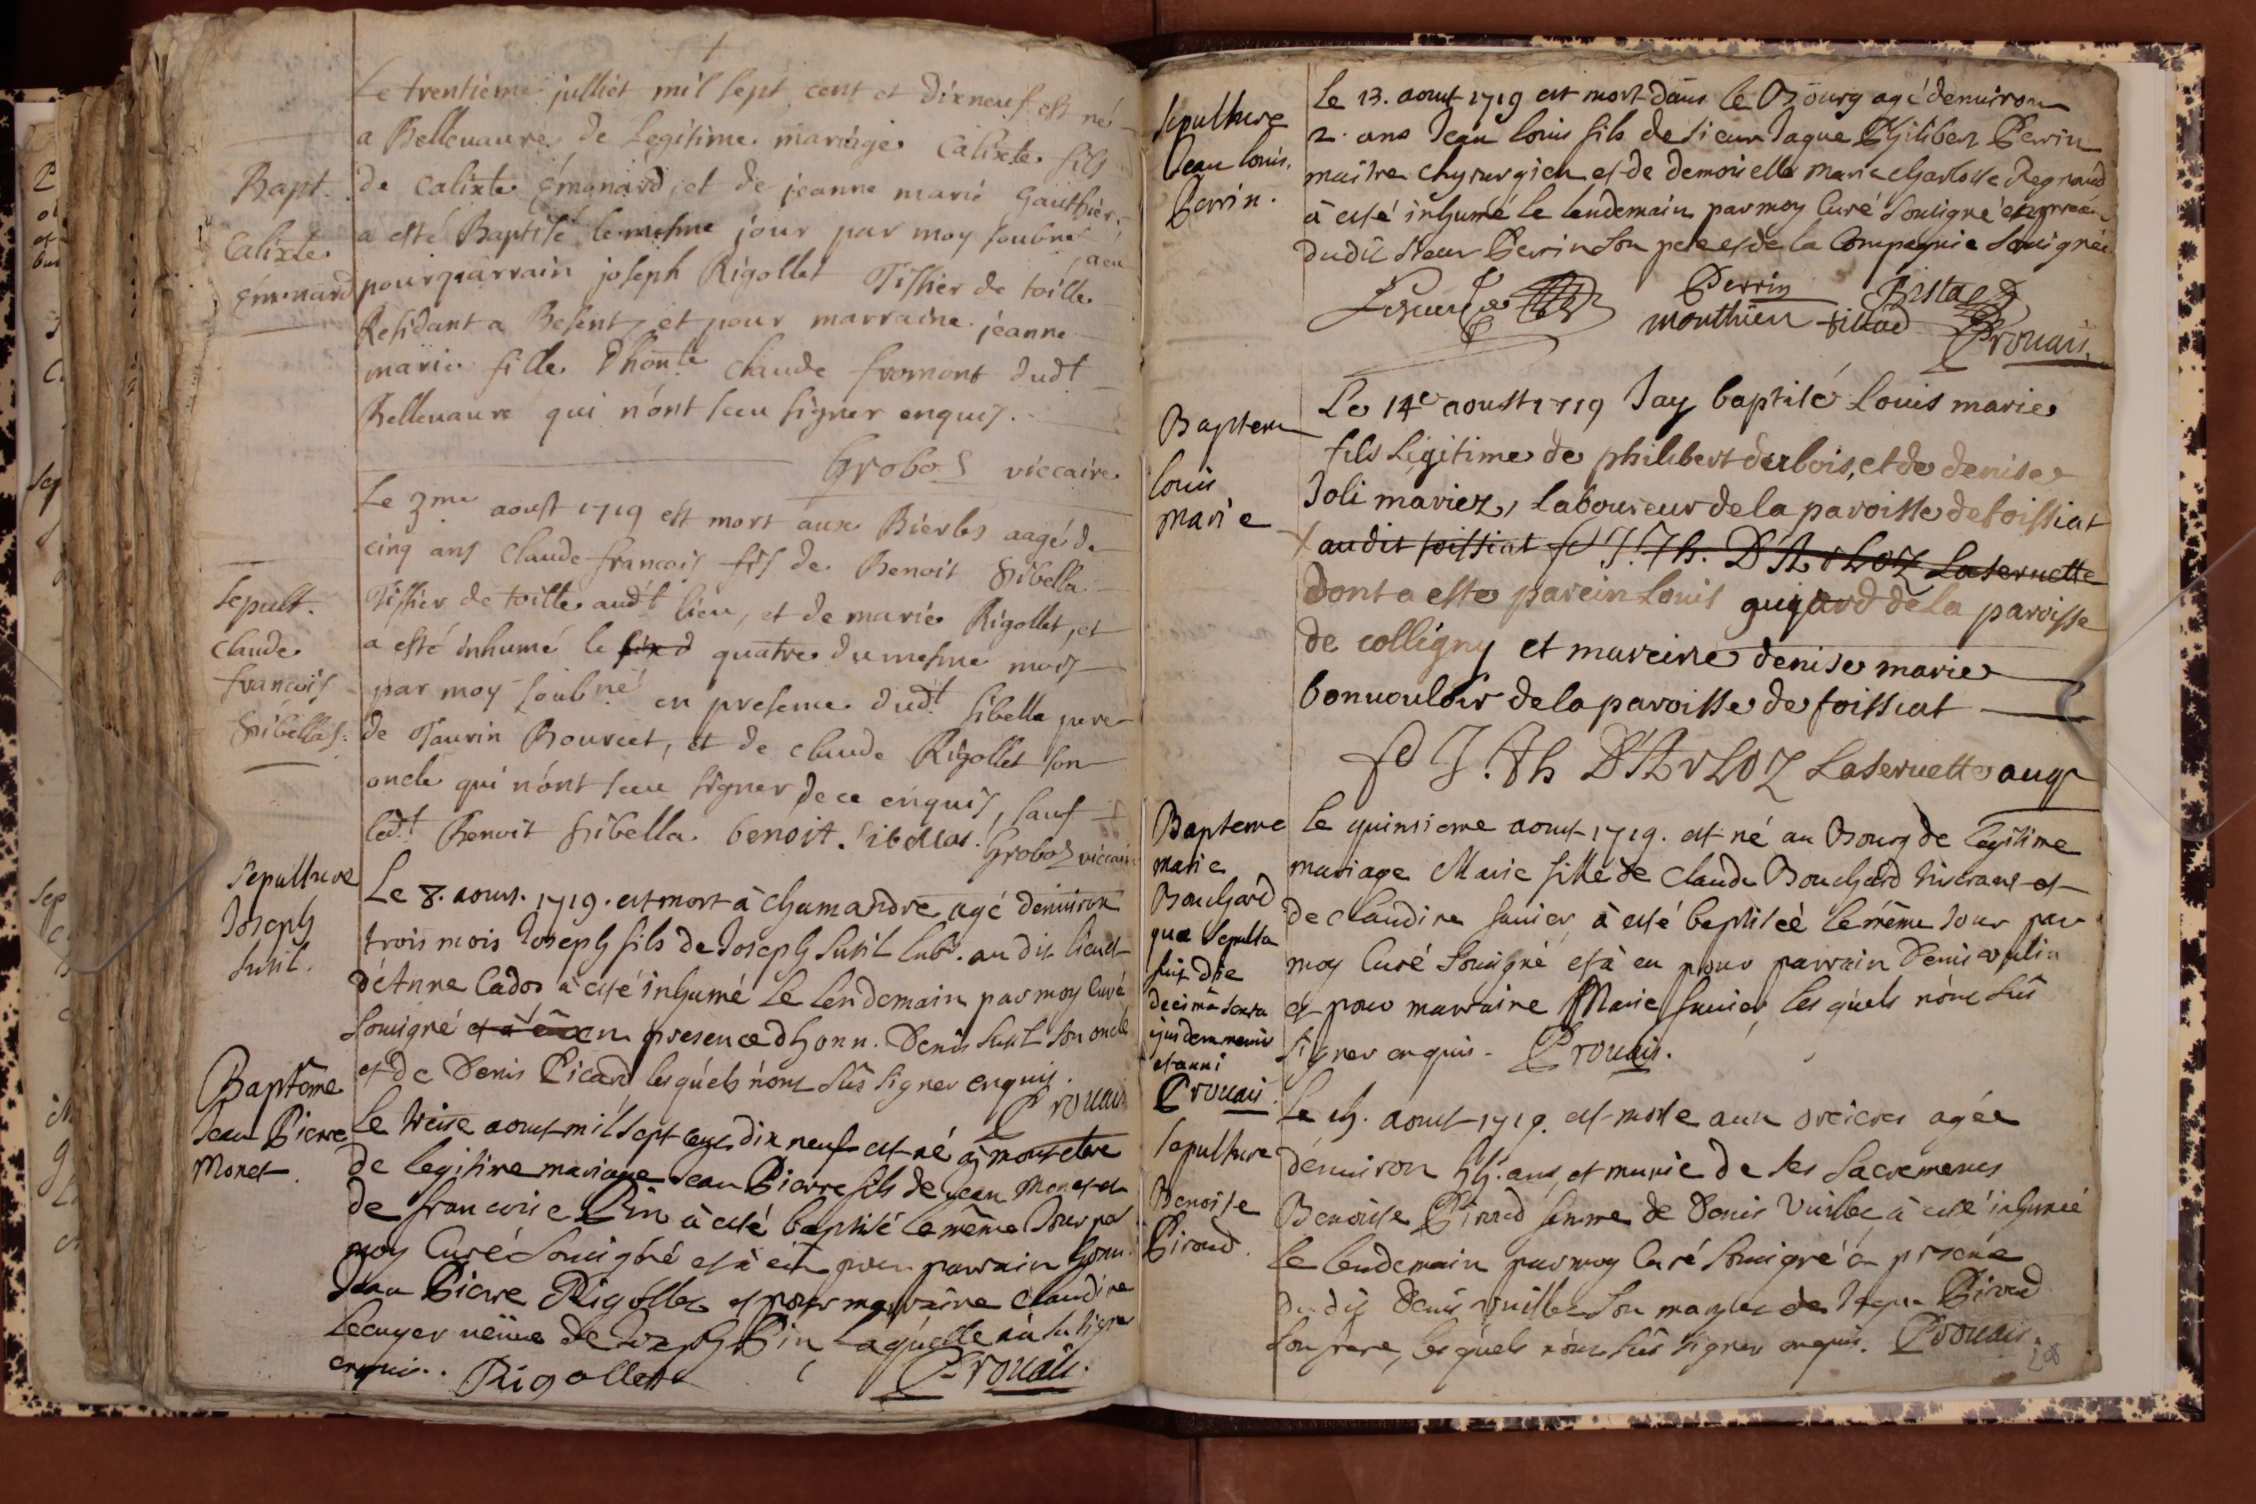 Le trentiéme julliet mil sept cent et dixneuf est né
a Bellevavre de Legitime mariage Calixte fils
Bapt.
de Calixte Émonard, et de jeanne marie Gauthier,
a esté Baptisé le mesme jour par moy soubné
Calixte
Émonard
pour parrain joseph Rigollet Tissier de toille
Residant a Besent, et pour marraine jeanne
marie fille d'honte Claude fromont dudt
Bellevavre qui n'ont sceu signer enquis.
Grobos viccaire
Le 3me aoust 1719 est mort aux Bierles aagé de
cinq ans Claude francois fils de Benoit Sibella
Tissier de toille audt lieu, et de marie Rigollet, et
Sepult.
Claude
francois
Sibellas.
a esté inhumé le quatre du mesme mois
par moy soubné en presence dudt Sibella pere
de Taurin Bourcet, et de Claude Rigollet son
oncle qui n'ont sceu signer de ce enquis, sauf
ledt Benoit Sibella. benoit. Sibellas. Grobos viccaire
Sepulture
Joseph
Sutil.
Le 8. aoust. 1719. est mort à Chamandre agé denviron
trois mois Joseph fils de Joseph Sutil labr. audit lieu et
d'Anne Cados à esté inhumé le lendemain par moy Curé
Souigné et à eu en presence dhonn. Denis Sutil son oncle
et de Denis Picard lesquels n'ont sûs signer enquis.
Prouais
Baptême
Jean Pierre
Monet.
Le treise aoust mil sept cent dix neuf est né à
de legitime mariage Jean Pierre fils de Jean Monet et
de francoise Pin à esté baptisé le même Jour par
moy Curé Souigné et à eû pour parrain honn.
Jean Piere Rigollet et pour marraine Claudine
Lecuyer veüve de Joseph Pin laquelle n'a su signer
enquis. Rigollet Prouais.
Sepulture
Jean Louis
Perrin.
Le 13. aoust 1719 est mort dans le Bourg agé denviron
2. ans Jean Louis fils de sieur Jaque Philibert Perrin
maitre chyrurgien et de demoiselle Marie Charlotte Regnaud
à esté inhumé le lendemain par moy Curé Souigné
dudit Sieur Perrin Son pere et de la Compagnie Souignée
Perrin
monthieu
Prouais
Baptem
louis
marie
Le 14e aoust 1719 Jay baptisé Louis marie
fils Légitime de philibert derbois, et de denise
Joli mariez, laboureur de la paroisse de foissiat
audit foissiat fd J. Th. D'ARLOZ Laservette
dont a este parein Louis guyard de la paroisse
de colligny et mareine denise marie
bonvouloir de la paroisse de foissiat
fd J. Th D'ARLOZ Laservette augr
Bapteme
marie
Bouchard
quæ Sepulta
fuit die
decimâ sexta
ejusdem mensis
et anni
Prouais.
Le quinsieme aoust 1719. est né au Bourg de legitime
mariage Marie fille de Claude Bouchard et
de Claudine Junier, à esté baptiseé le même Jour par
moy Curé Souigné et à eu pour parrain Denis
et pour marraine Marie Junier, lesquels n'ont sûs
signer enquis. Prouais.
Sepulture
Benoiste
Piroud.
Le aoust 1719. est morte aux agée
dénviron ans, et munie de ses Sacrements
Benoiste Piroud femme de Denis Vuillet à esté inhumeé
le lendemain par moy Curé Souigné
dudit Denis Vuillet Son mary et de Jaque Piroud
Son frere, lesquels n'ont sûs signer enquis. Prouais.